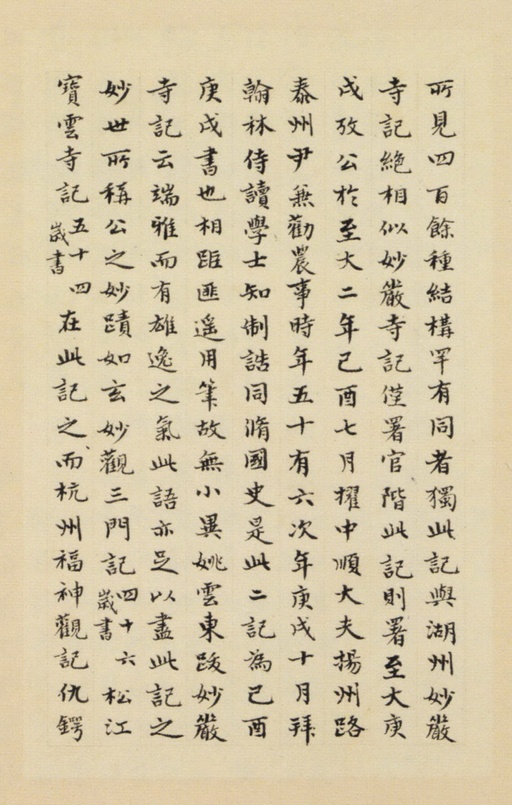 所見四百餘種結構罕有同者獨此記與湖州妙嚴
寺記絕相似妙嚴寺記僅署官階此記則署至大庚
戌攷公於至大二年己酉七月擢中順大夫揚州路
泰州尹兼勸農事時年五十有六次年庚戌十月拜
翰林侍讀學士知制誥同脩國史是此二記為己酉
庚戌書也相距匪遥用筆故無小異姚雲東跋妙嚴
寺記云端雅而有雄逸之氣此語亦足以盡此記之
妙世所稱公之妙蹟如玄妙觀三門記四十六歲書松江
寶雲寺記五十四歲書在此記之而杭州福神觀記仇鍔